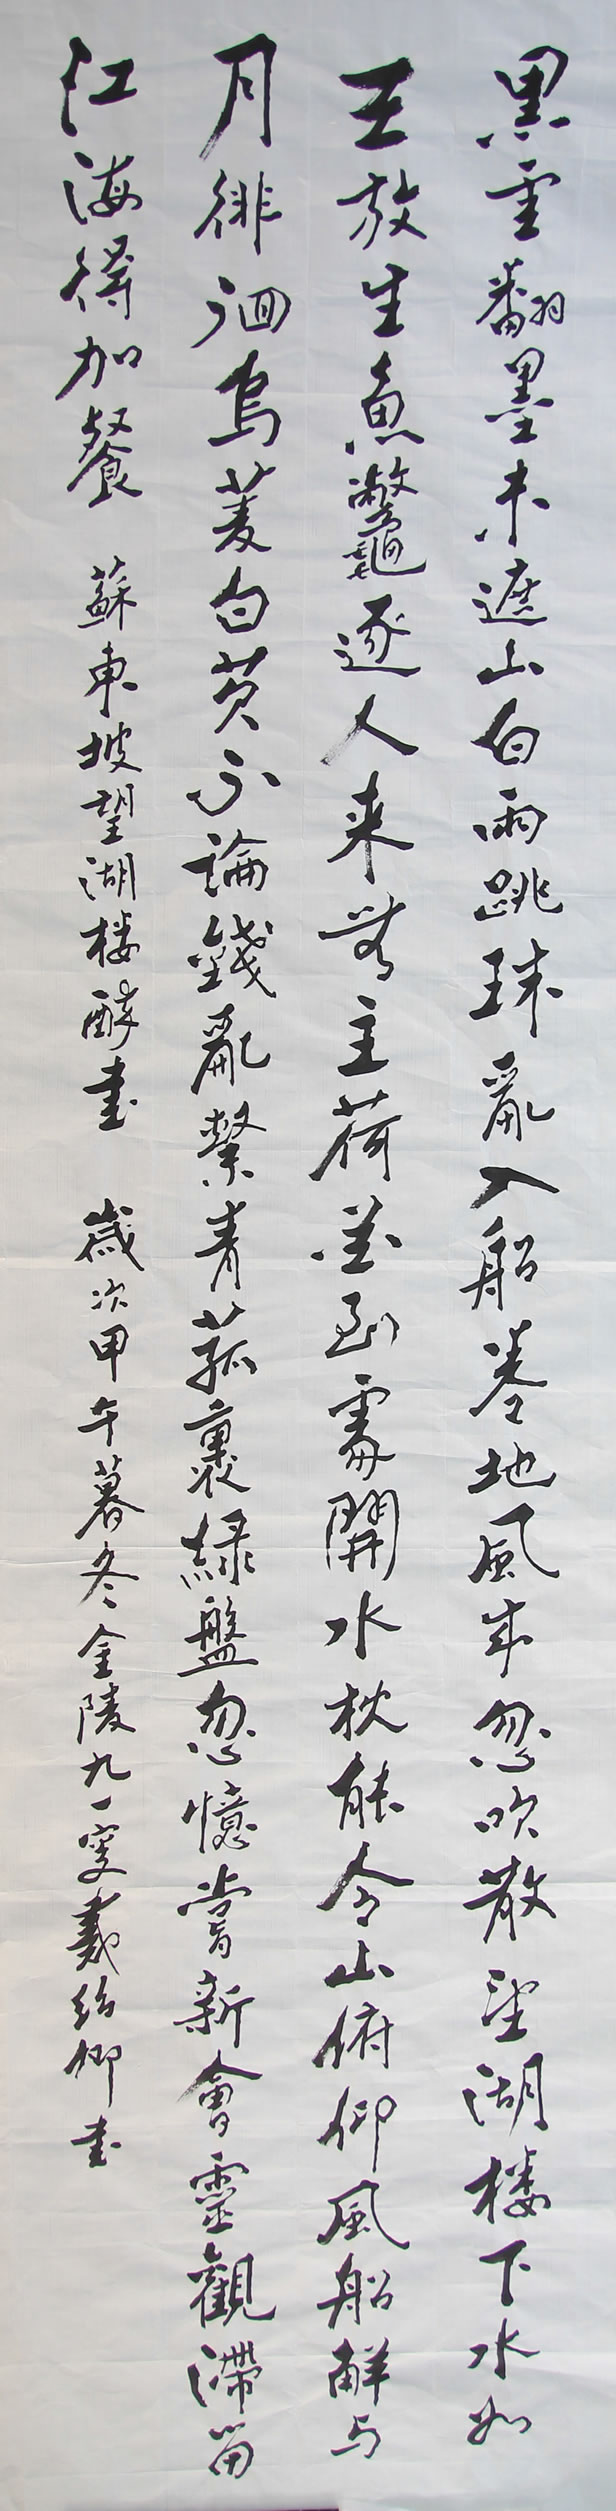 黑雲翻墨未遮山白雨跳珠亂入船卷地風来忽吹散望湖楼下水如
天放生魚鼈逐人来無主荷花到處開水枕能令山俯仰風船解与
月徘徊烏菱白芡不論錢亂繫青菰裹綠盤忽憶嘗新會靈觀滯留
江海得加餐 蘇東坡望湖楼醉書 歲次甲午暮冬金陵九一叟戴紹卿書